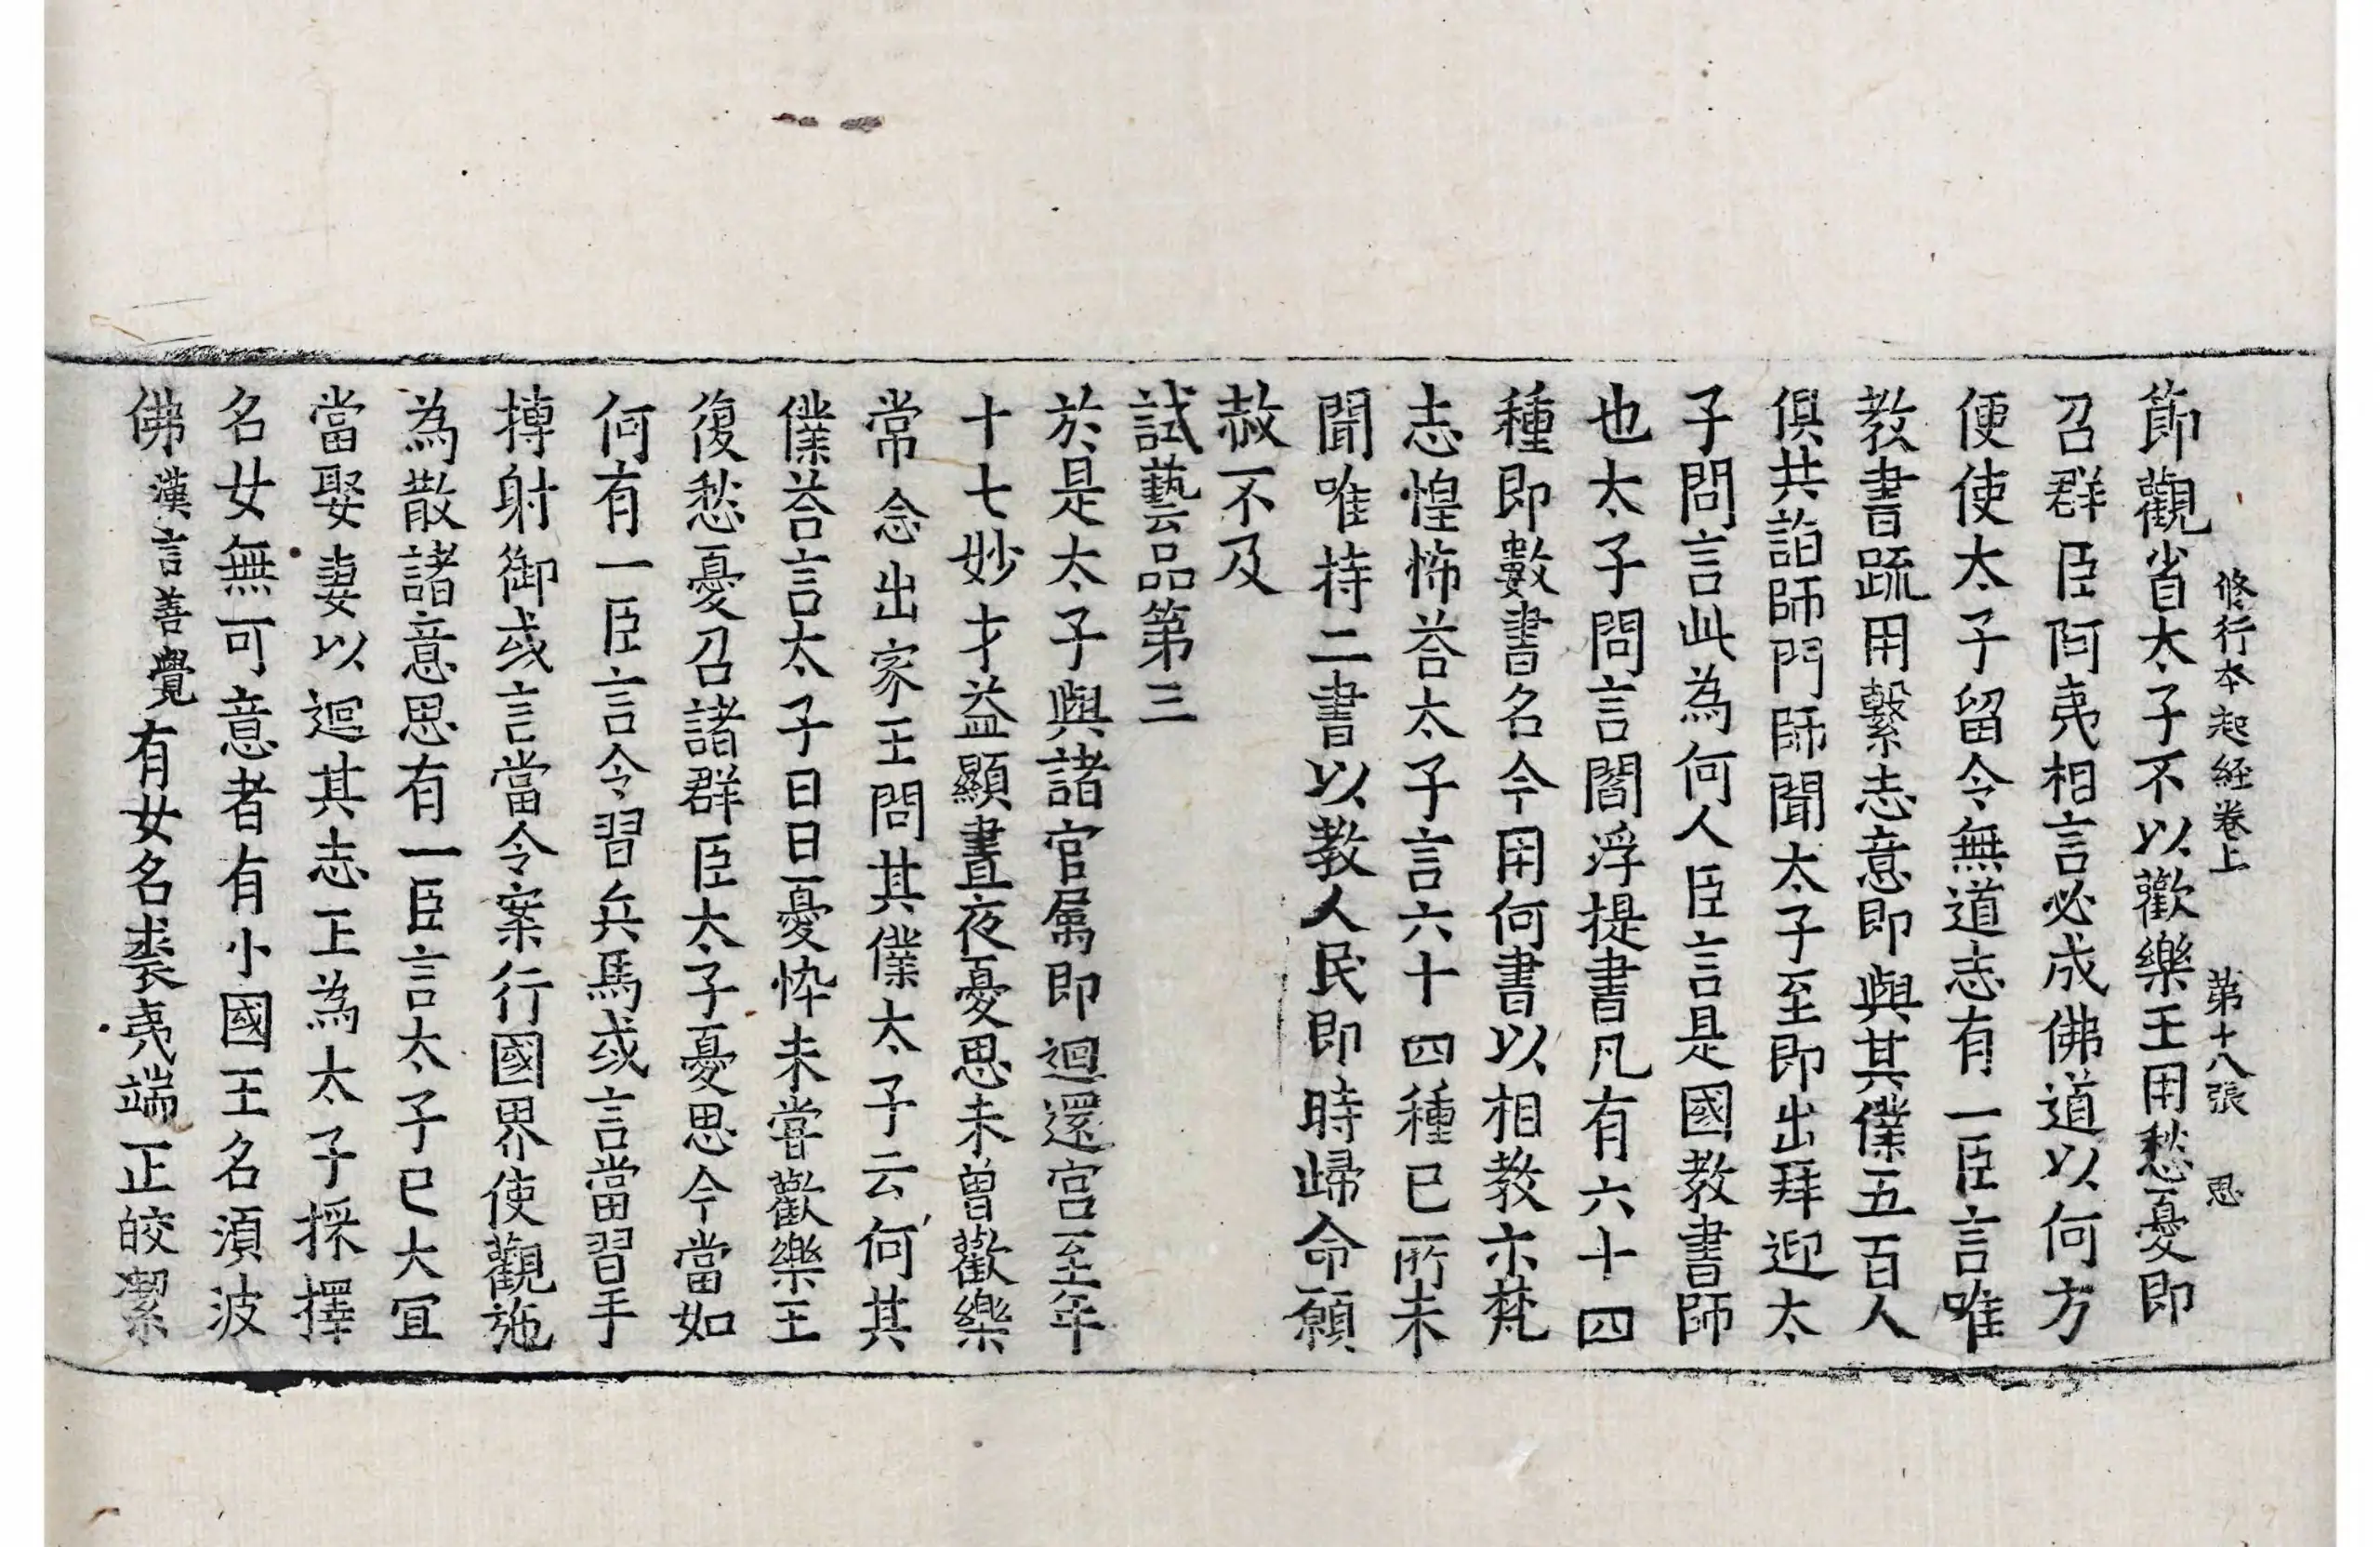 修行本起経卷上　第十八張　思
節觀省太子不以歡樂王用愁憂即
召群臣阿夷相言必成佛道以何方
便使太子留令無道志有一臣言唯
教書䟽用繫志意即與其僕五百人
俱共詣師門師聞太子至即出拜迎太
子問言此為何人臣言是國教書師
也太子問言閻浮提書凡有六十四
種即數書名今用何書以相教亦梵
志惶怖荅太子言六十四種已所未
聞唯持二書以教人民即時歸命願
赦不及
試藝品第三
於是太子與諸官屬即迴還宮至年
十七妙才益顯晝夜憂思未曾歡樂
常念出家王問其僕太子云何其
僕荅言太子日日憂悴未甞歡樂王
復愁憂召諸群臣太子憂思今當如
何有一臣言令習兵馬或言當習手
搏射御或言當令案行國界使觀施
為散諸意思有一臣言太子已大宜
當娶妻以迴其志王為太子採擇
名女無可意者有小國王名須波
佛漢言善覺有女名裘夷端正皎潔